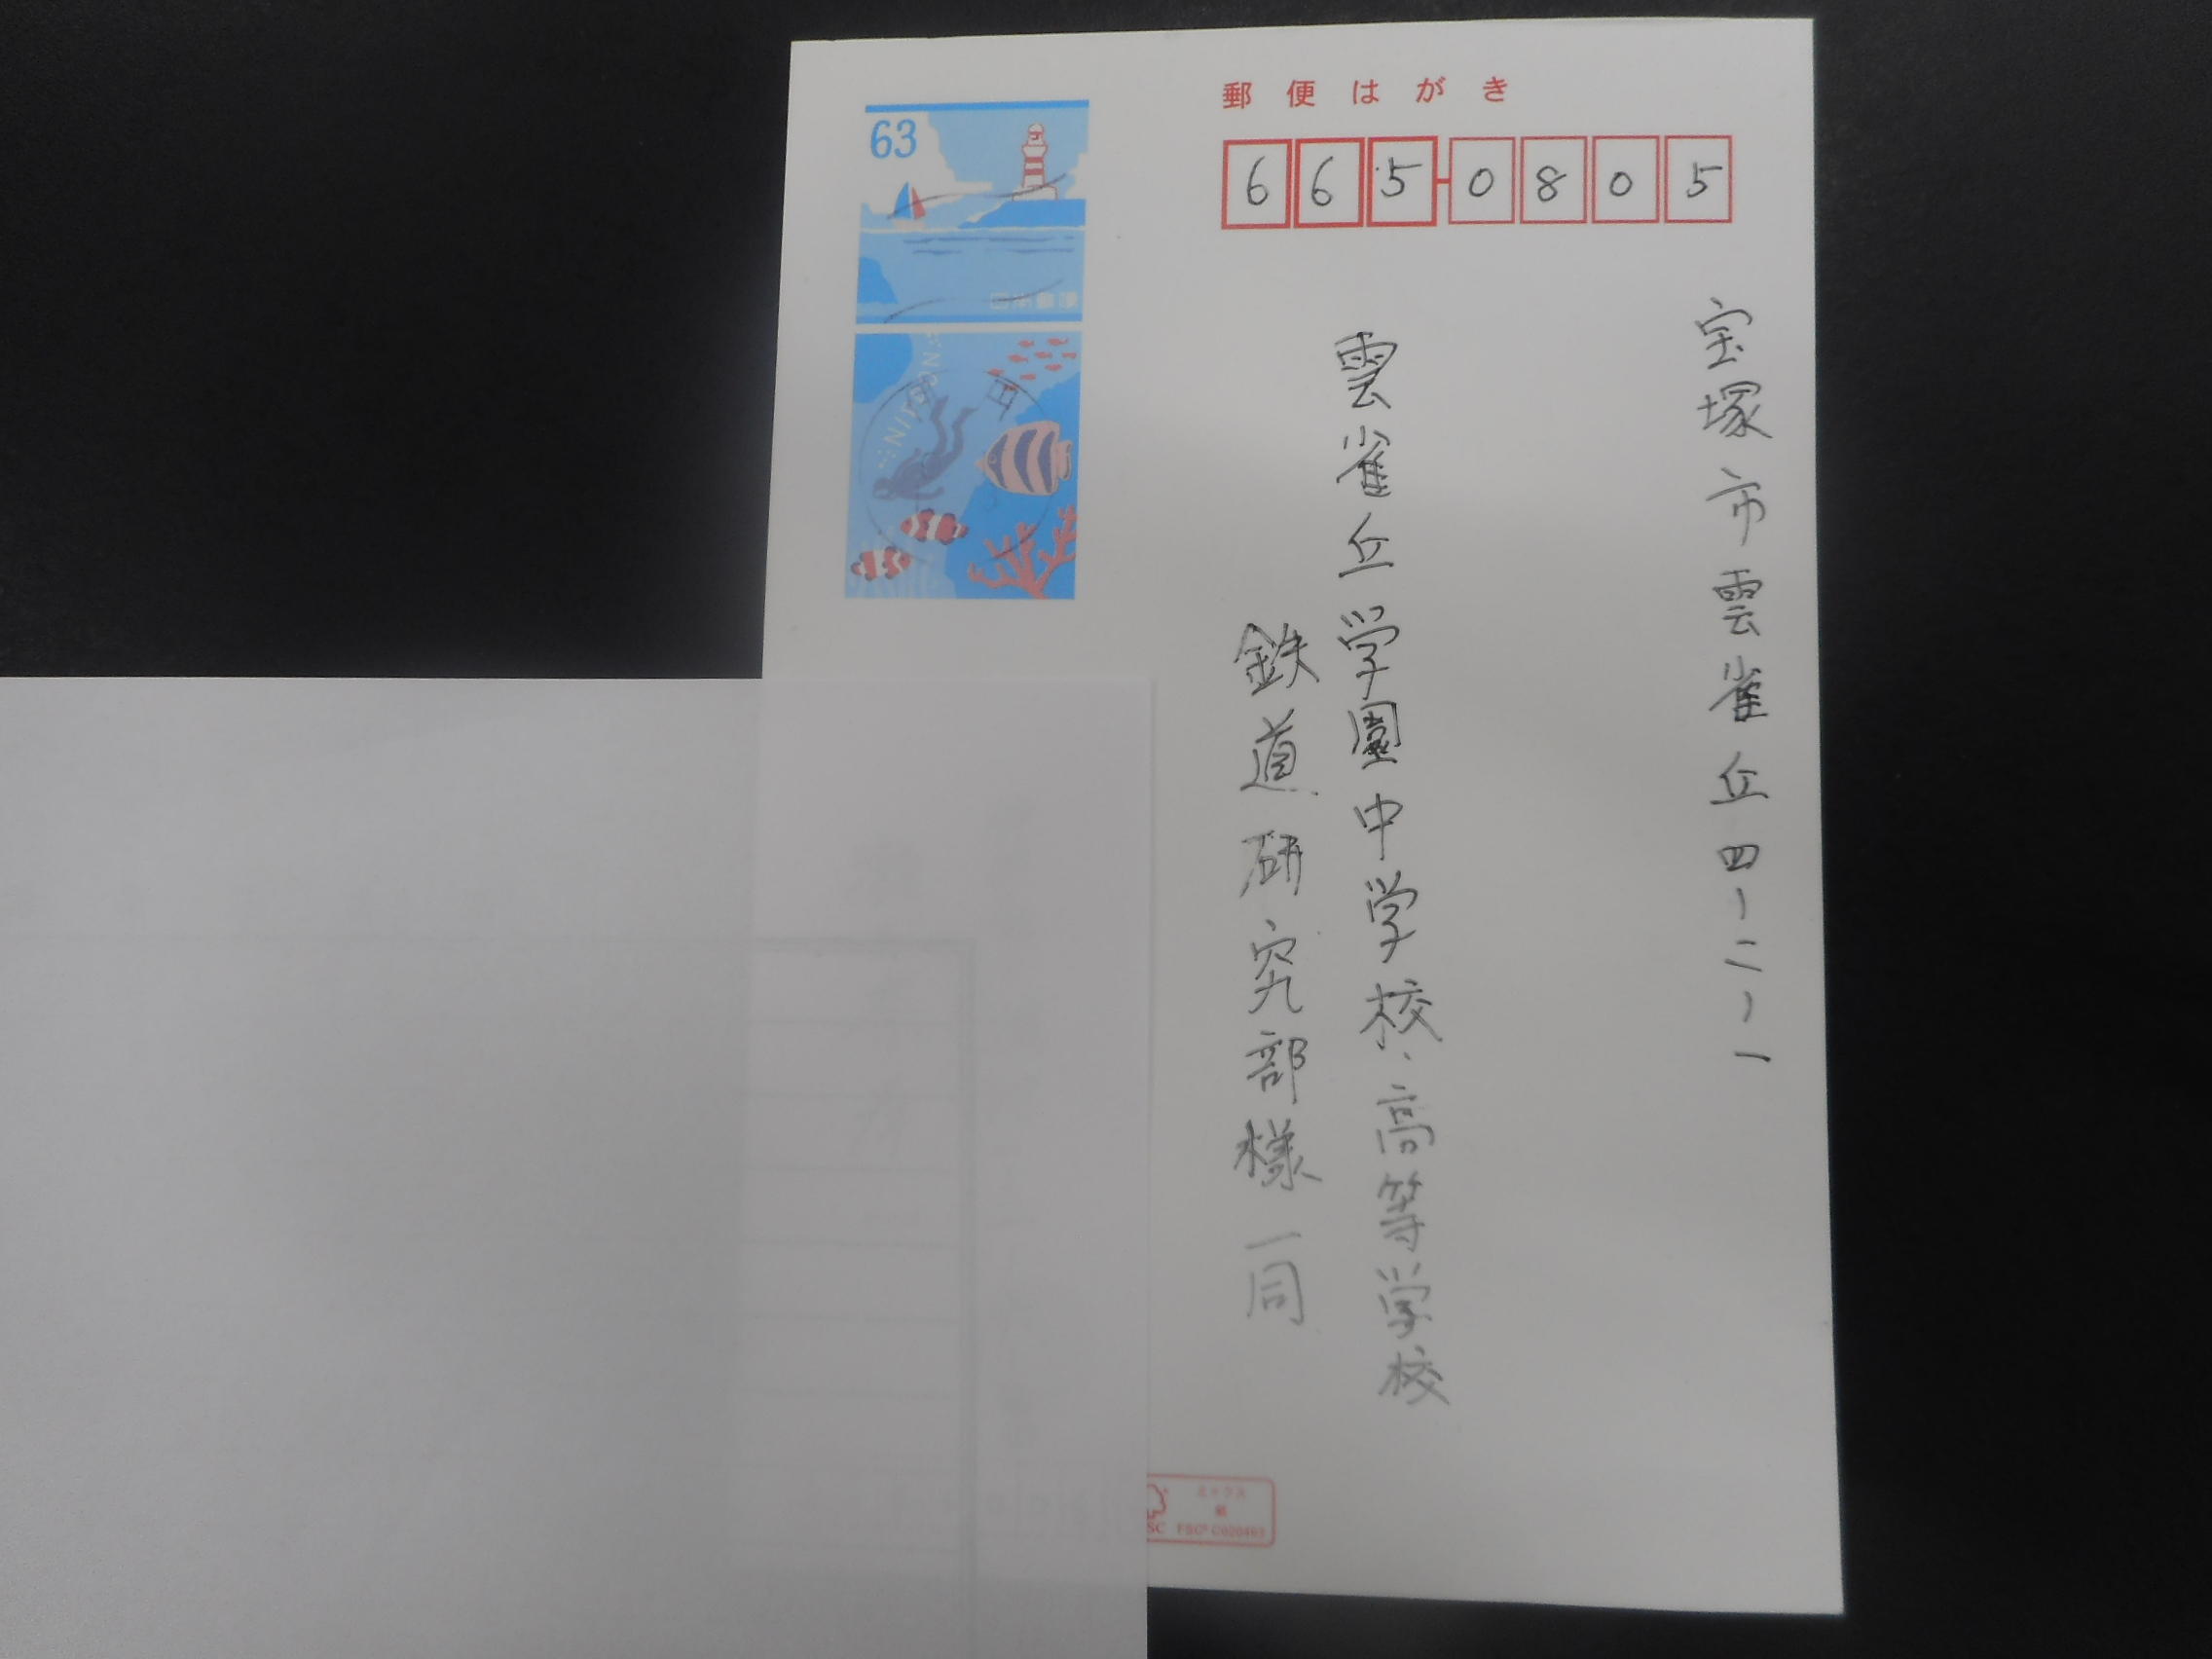 郵便はがき
665-0805
宝塚市雲雀丘四-二-一
雲雀丘学園中学校・高等学校
鉄道研究部様一同
63
日本郵便
NIPPON
ミックス
紙
FSC FSC® C020465